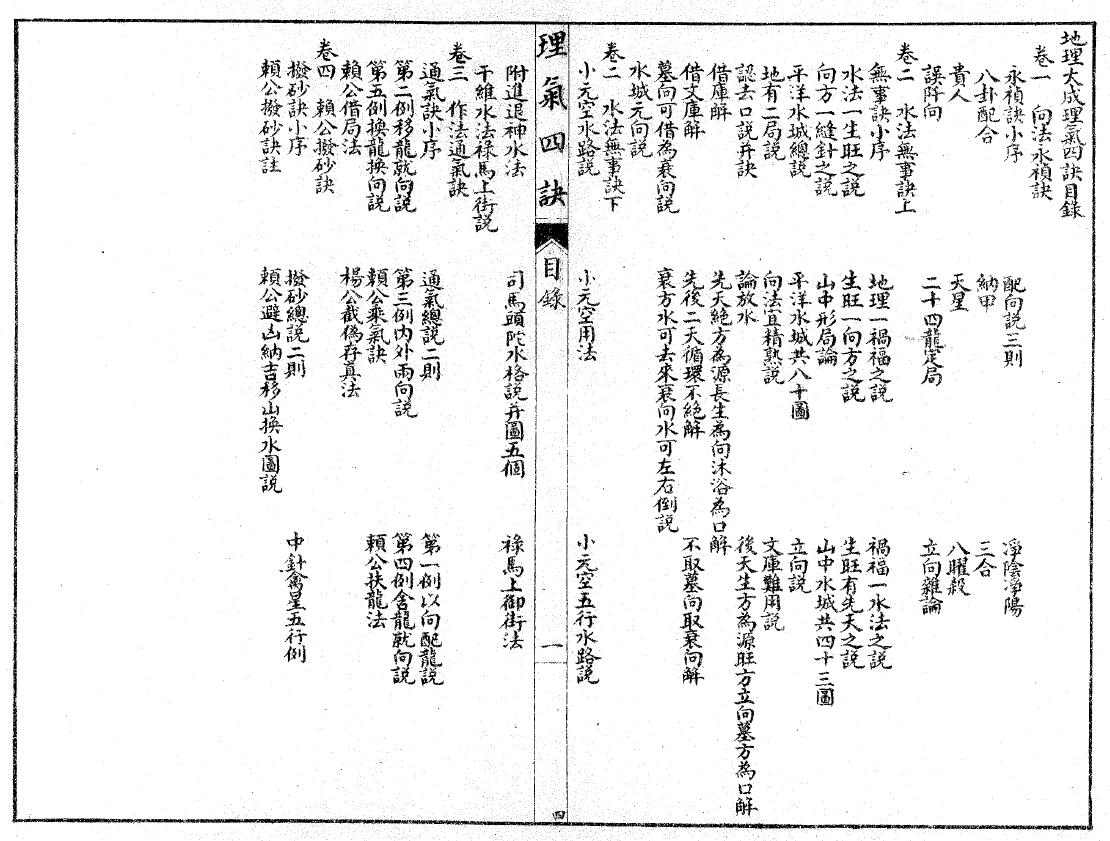 地理大成理氣四訣目錄
卷一　向法水禎訣
永禎訣小序　配向説三則　淨陰淨陽
八卦配合　納甲　三合
貴人　天星　八曜殺
誤阡向　二十四龍定局　立向雜論
卷二　水法無事訣上
無事訣小序　地理一禍福之説　禍福一水法之説
水法一生旺之説　生旺一向方之説　生旺有先天之説
向方一縫針之説　山中形局論　山中水城共四十三圖
平洋水城總説　平洋水城共八十圖　立向説
地有二局説　向法宜精熟説　文庫難用説
認去口説并訣　論放水　後天生方為源旺方立向墓方為口解
借庫解　先天絶方為源長生為向沐浴為口解
借文庫解　先後二天循環不絶解　不取墓向取衰向解
墓向可借為衰向説　衰方水可去來衰向水可左右倒説
水城元向説
卷二　水法無事訣下
小元空水路説　小元空用法　小元空五行水路説
理氣四訣
目錄
一
四
附進退神水法　司馬頭陀水格説并圖五個　祿馬上御街法
干維水法祿馬上街説
卷三　作法通氣訣
通氣訣小序　通氣總説二則　第一例以向配龍説
第二例移龍就向説　第三例内外兩向説　第四例舍龍就向説
第五例換龍換向説　賴公乘氣訣　賴公扶龍法
賴公借局法　楊公截偽存真法
卷四　賴公撥砂訣
撥砂訣小序　撥砂總説二則　中針禽星五行例
賴公撥砂訣註　賴公避凶納吉移山換水圖説